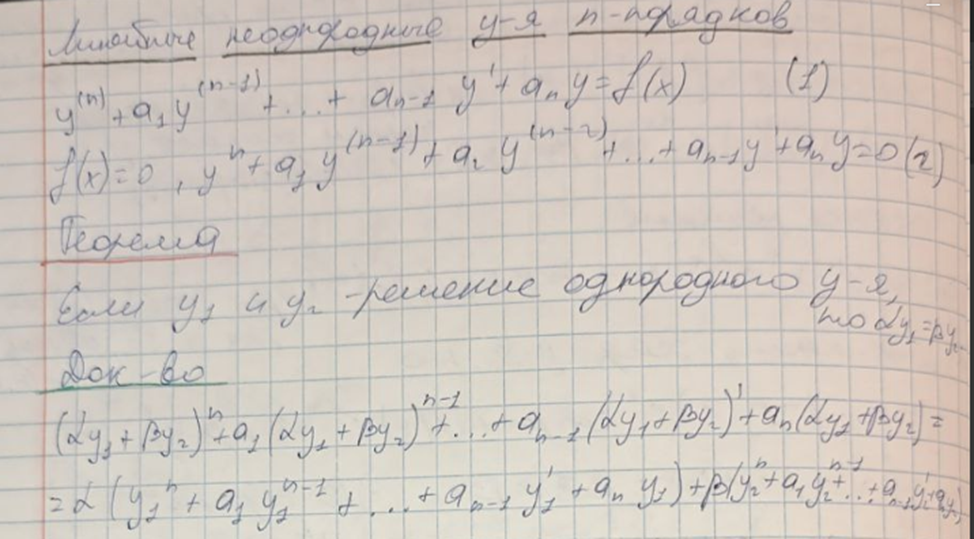 Линейные неоднородные у-я n-порядков
y⁽ⁿ⁾ + a₁y⁽ⁿ⁻¹⁾ + ... + aₙ₋₁ y' + aₙ y = f(x) (1)
f(x) = 0, yⁿ + a₁ y⁽ⁿ⁻¹⁾ + a₂ y⁽ⁿ⁻²⁾ + ... + aₙ₋₁ y' + aₙ y = 0 (2)
Теорема
Если y₁ и y₂ - решение однородного у-я,
то αy₁ = βy₂
Док-во
(αy₁ + βy₂)ⁿ + a₁ (αy₁ + βy₂)ⁿ⁻¹ + ... + aₙ₋₁ (αy₁ + βy₂)' + aₙ (αy₁ + βy₂) =
= α (y₁ⁿ + a₁ y₁ⁿ⁻¹ + ... + aₙ₋₁ y₁' + aₙ y₁) + β(y₂ⁿ + a₁ y₂ⁿ⁻¹ + ... + aₙ₋₁ y₂' + aₙ y₂)